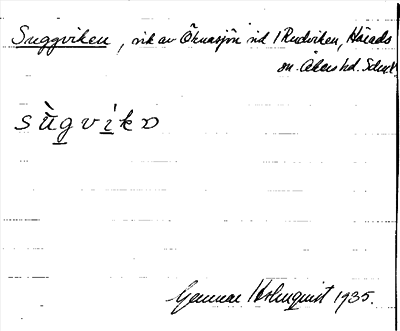 Suggviken, vik av Öknasjön vid 1 Rudviken, Härads
sn. Åkers hd.
sùgvikɔ
Gunnar Holmquist 1935.